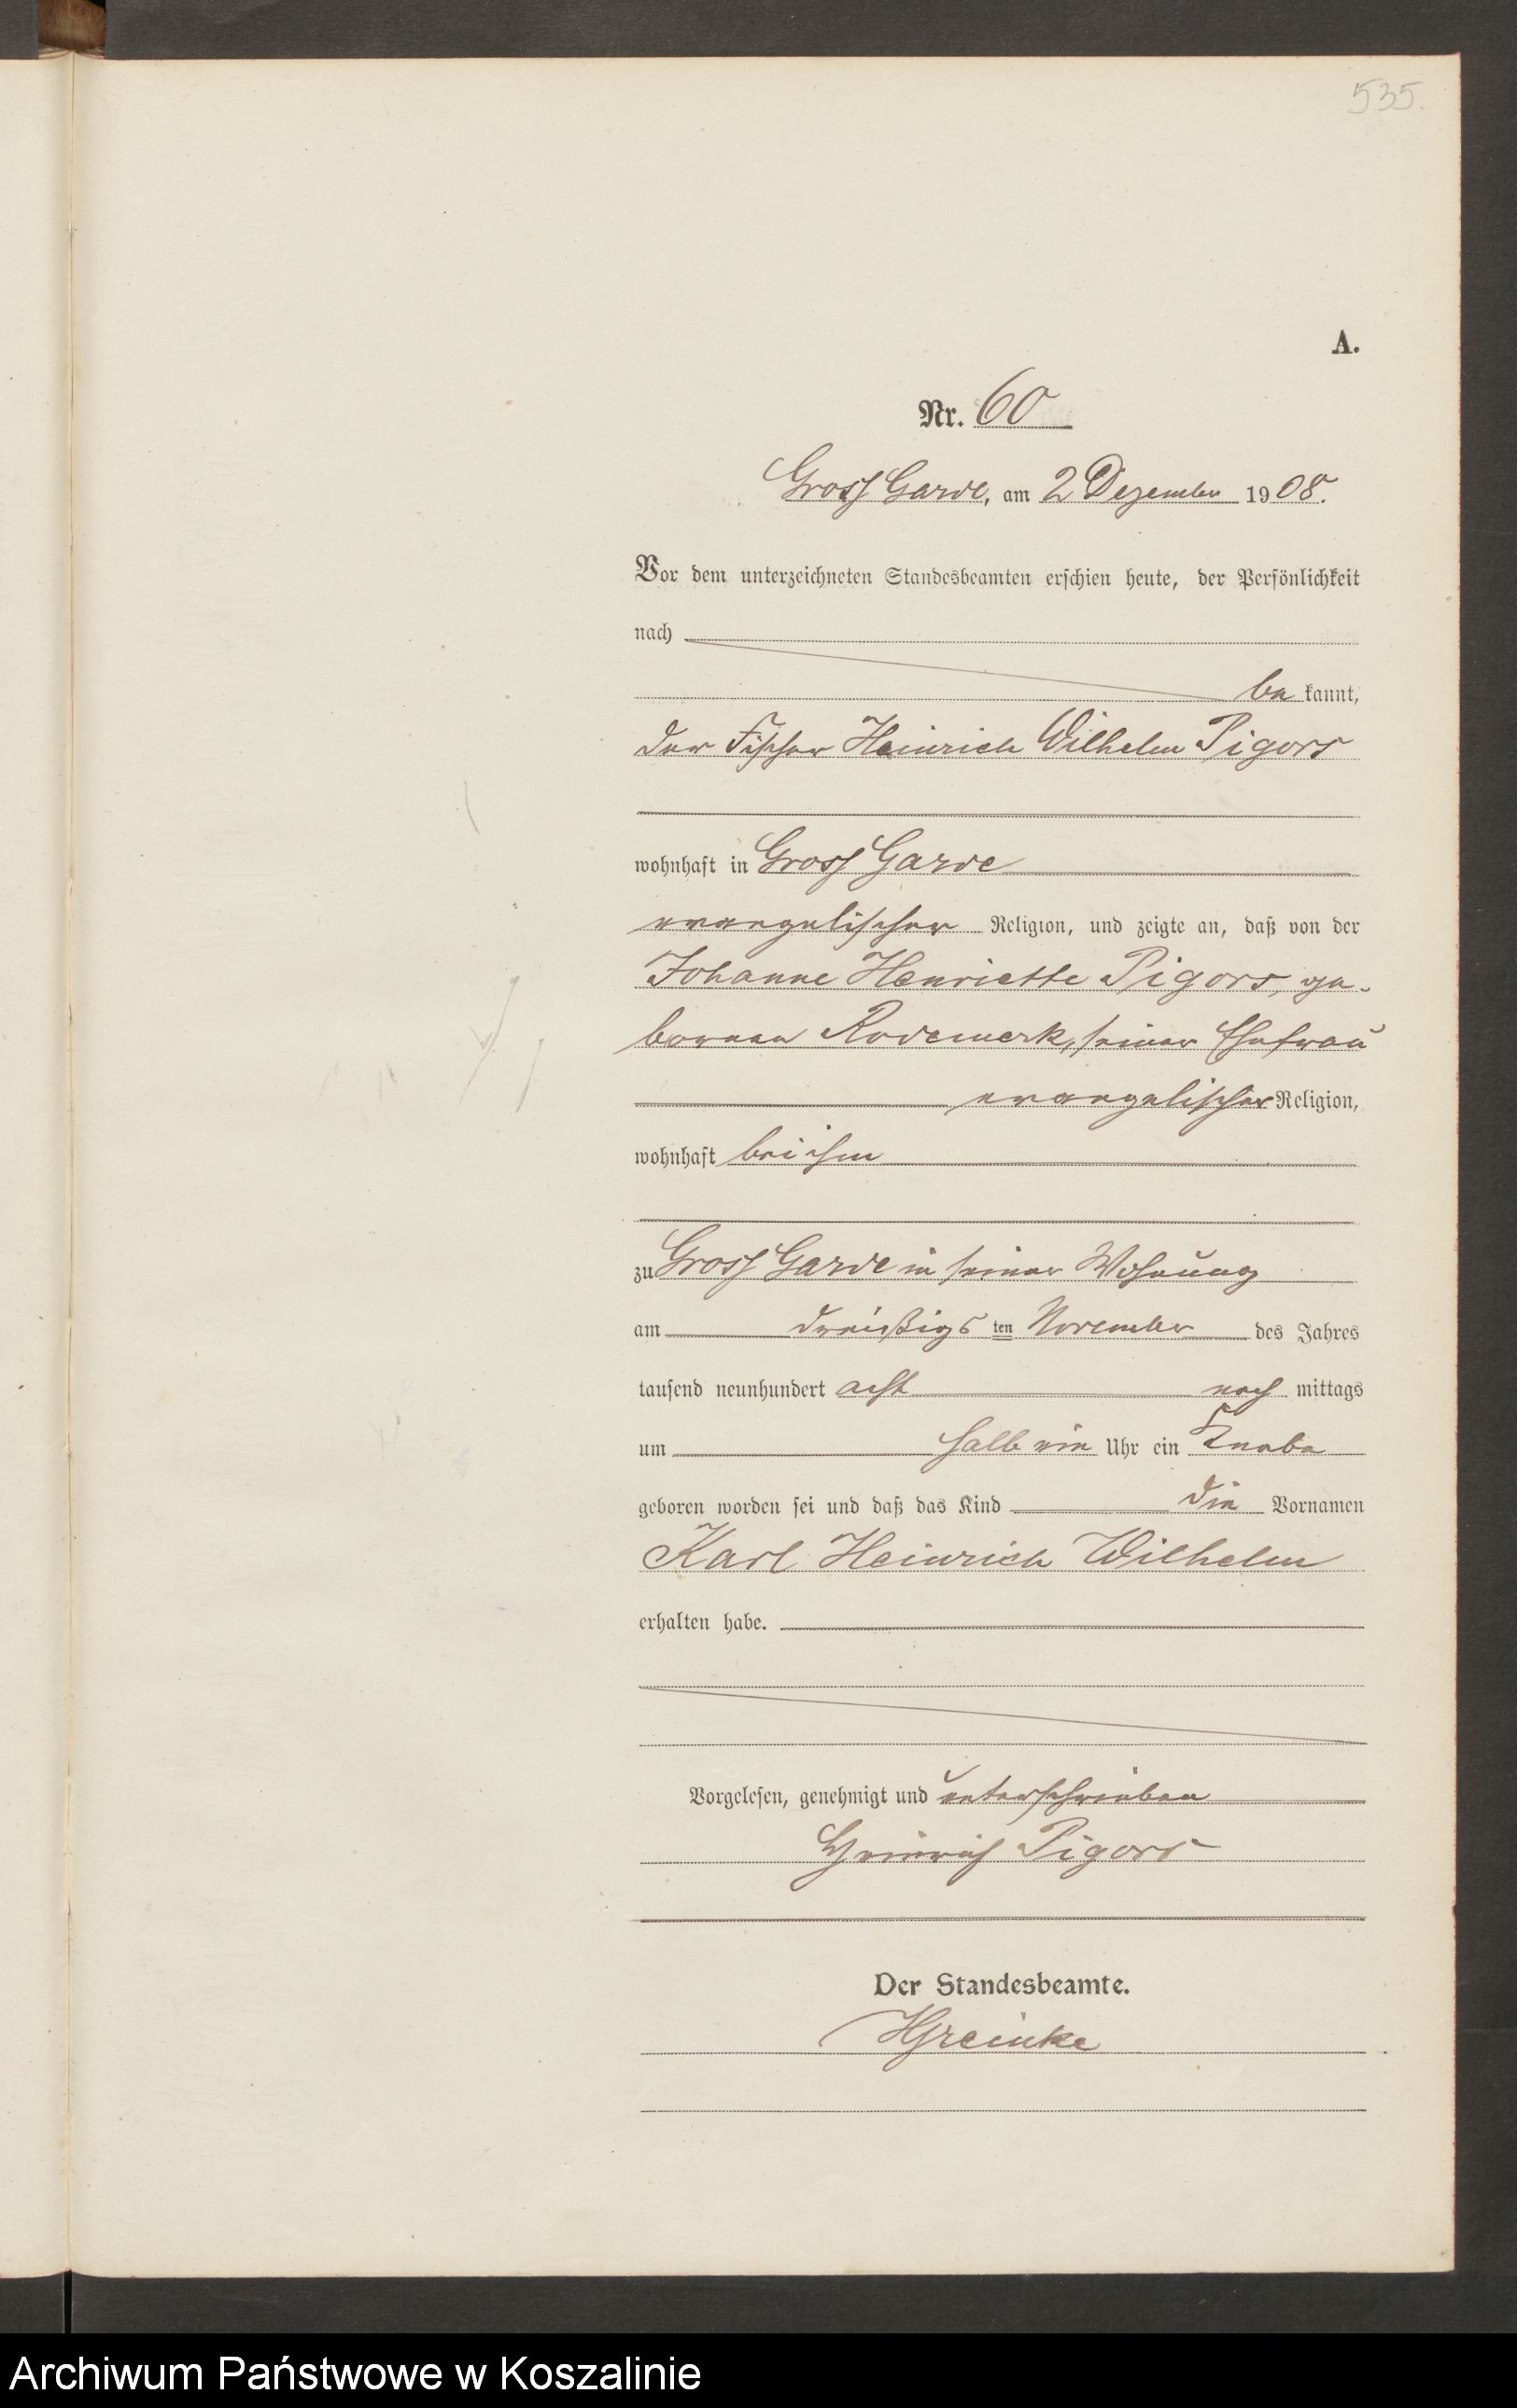 535.
A.
Nr. 60
Gross Garde, am 2 Dezember 1908.
Vor dem unterzeichneten Standesbeamten erschien heute, der Persönlichkeit
nach
bekannt,
der Fischer Heinrich Wilhelm Pigors
wohnhaft in Gross Garde
evangelischer Religion, und zeigte an, daß von der
Johanne Henriette Pigors, ge-
borenen Rodemerk, seiner Ehefrau
evangelischer Religion,
wohnhaft bei ihm
zu Gross Garde in seiner Wohnung
am dreißigsten November des Jahres
tausend neunhundert acht nach mittags
um halb ein Uhr ein Knabe
geboren worden sei und daß das Kind die Vornamen
Karl Heinrich Wilhelm
erhalten habe.
Vorgelesen, genehmigt und unterschrieben
Heinrich Pigors
Der Standesbeamte.
HGreinke
Archiwum Państwowe w Koszalinie